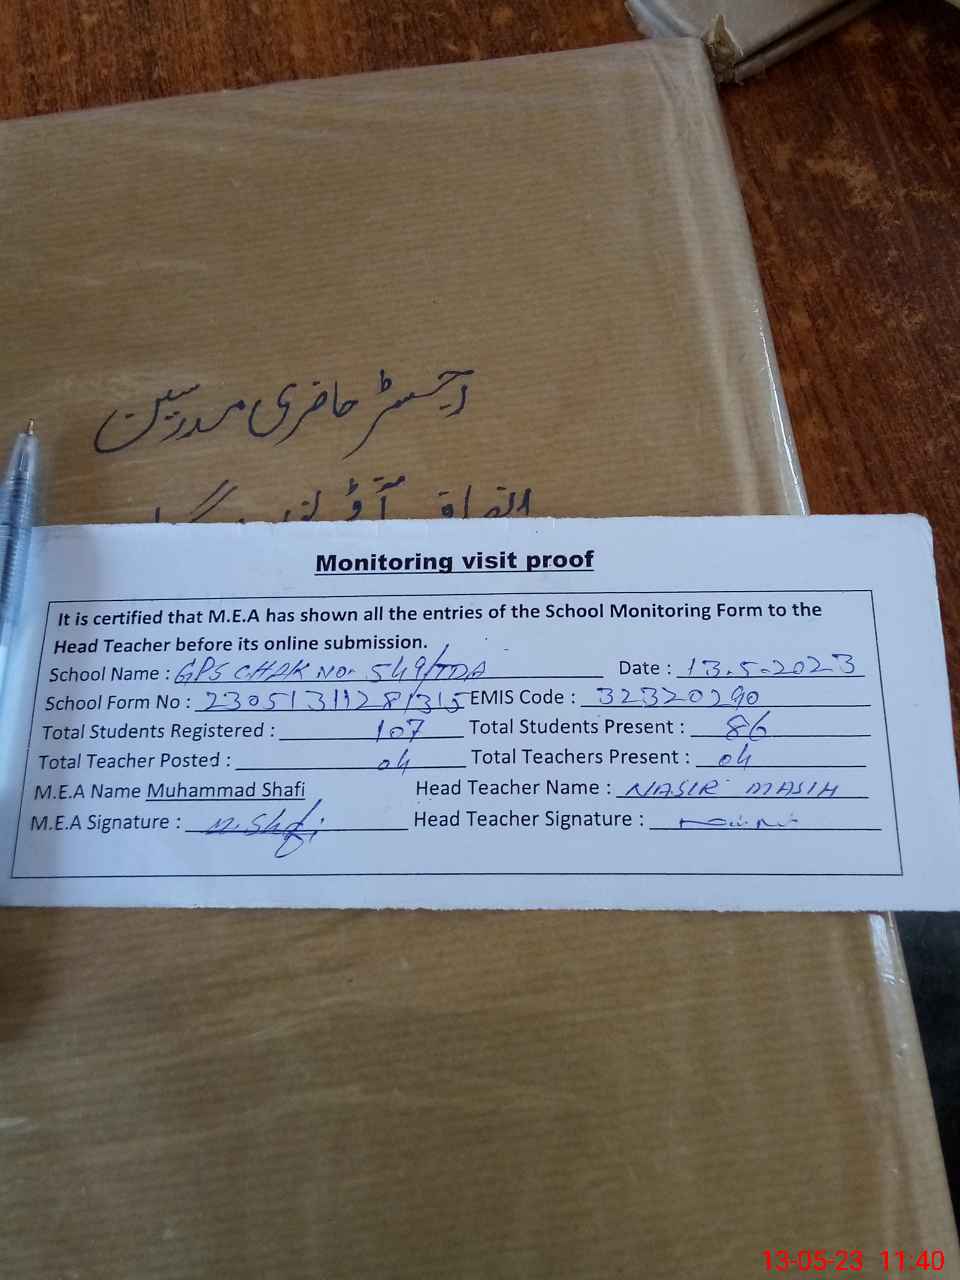 رجسٹر حاضری مدرسین
Monitoring visit proof
It is certified that M.E.A has shown all the entries of the School Monitoring Form to the
Head Teacher before its online submission.
School Name : GPS CHAK No. 549/TDA Date : 13.5.2023
School Form No : 23051311281315 EMIS Code : 32320290
Total Students Registered : 107 Total Students Present : 86
Total Teacher Posted : 04 Total Teachers Present : 04
M.E.A Name Muhammad Shafi Head Teacher Name : NASIR MASIH
M.E.A Signature : M. Shafi Head Teacher Signature :
13-05-23 11:40